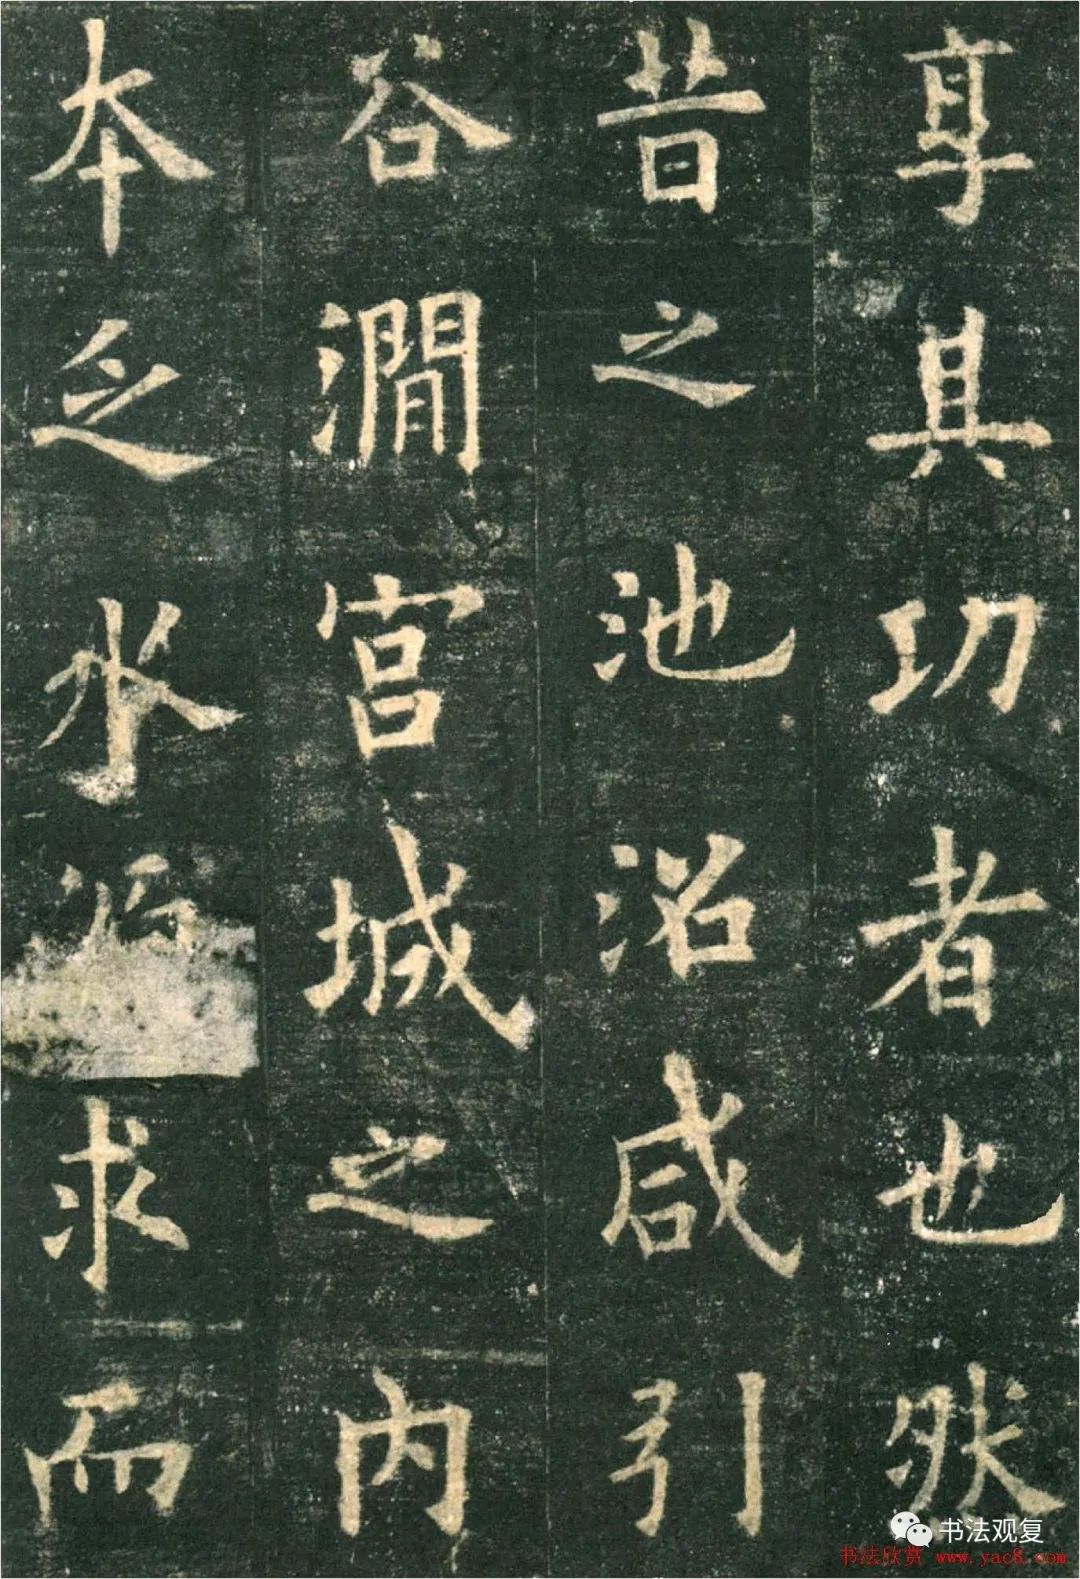 享其功者也然
昔之池沼咸引
谷澗宮城之内
本乏水求而
书法观复
书法欣赏 www.yac8.com